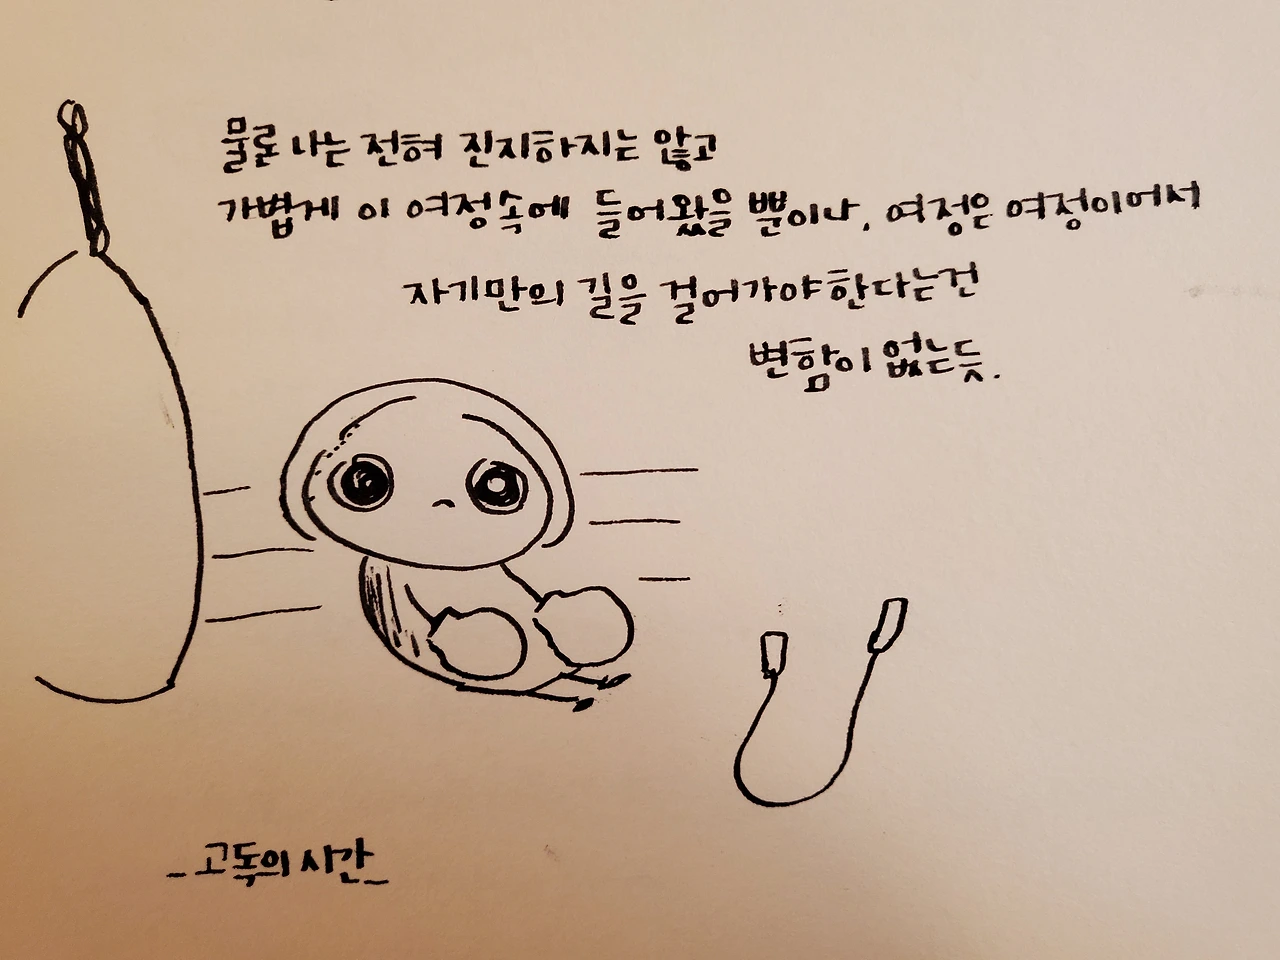 물론 나는 전혀 진지하지는 않고
가볍게 이 여정속에 들어왔을 뿐이나, 여정은 여정이어서
자기만의 길을 걸어가야한다는건
변함이 없는듯.
_고독의 시간_